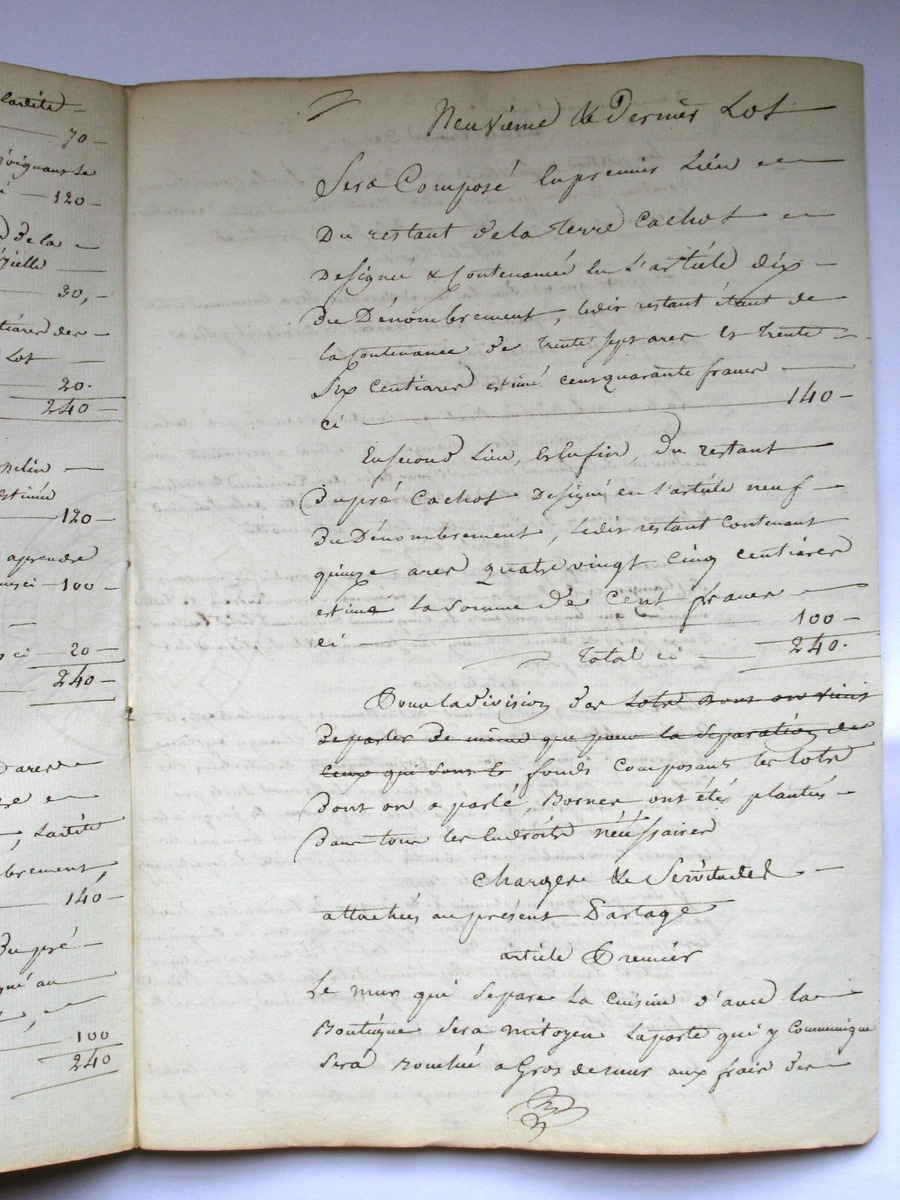 lartite
70 —
joignant le
— 120 —
de la —
30, —
tiares des —
Lot —
20.
240 —
estimée
120 —
aprendre
ci — 100 —
ci — 20 —
240 —
D'ares
en —
, lartite
brement,
140 —
Du pré —
gné au
100
240
Neuvieme & Dernier Lot
Sera Composé En premier Lieu en
Du restant de la Terre Cachot en
Designée & Contenancée En L'article dix —
Du Dénombrement, ledit restant étant de
la Contenance de trente sept ares Et Trente
Six Centiares estimé cent quarante francs —
ci — 140 —
En second Lieu, Et Enfin, Du restant
Du pré Cachot Designé en l'article neuf
Du Dénombrement, ledit restant Contenant
quinze ares quatre vingt cinq centiares
estimé La Somme de Cent francs —
ci — 100 —
Total ci — 240.
Pour la division des Lots dont on vient
de parler de même que pour la Séparation des
ceux qui sont le fonds composant les lots
Dont on a parlé, Bornes ont étés plantés —
Dans tous les Endroits nécessaires
Charges & Servitudes —
attachées au présent Partage
article Premier
Le mur qui separe La Cuisine d'avec la
Boutique Sera mitoyen La porte qui y Communique
Sera Bouchée a Gros de mur aux frais des